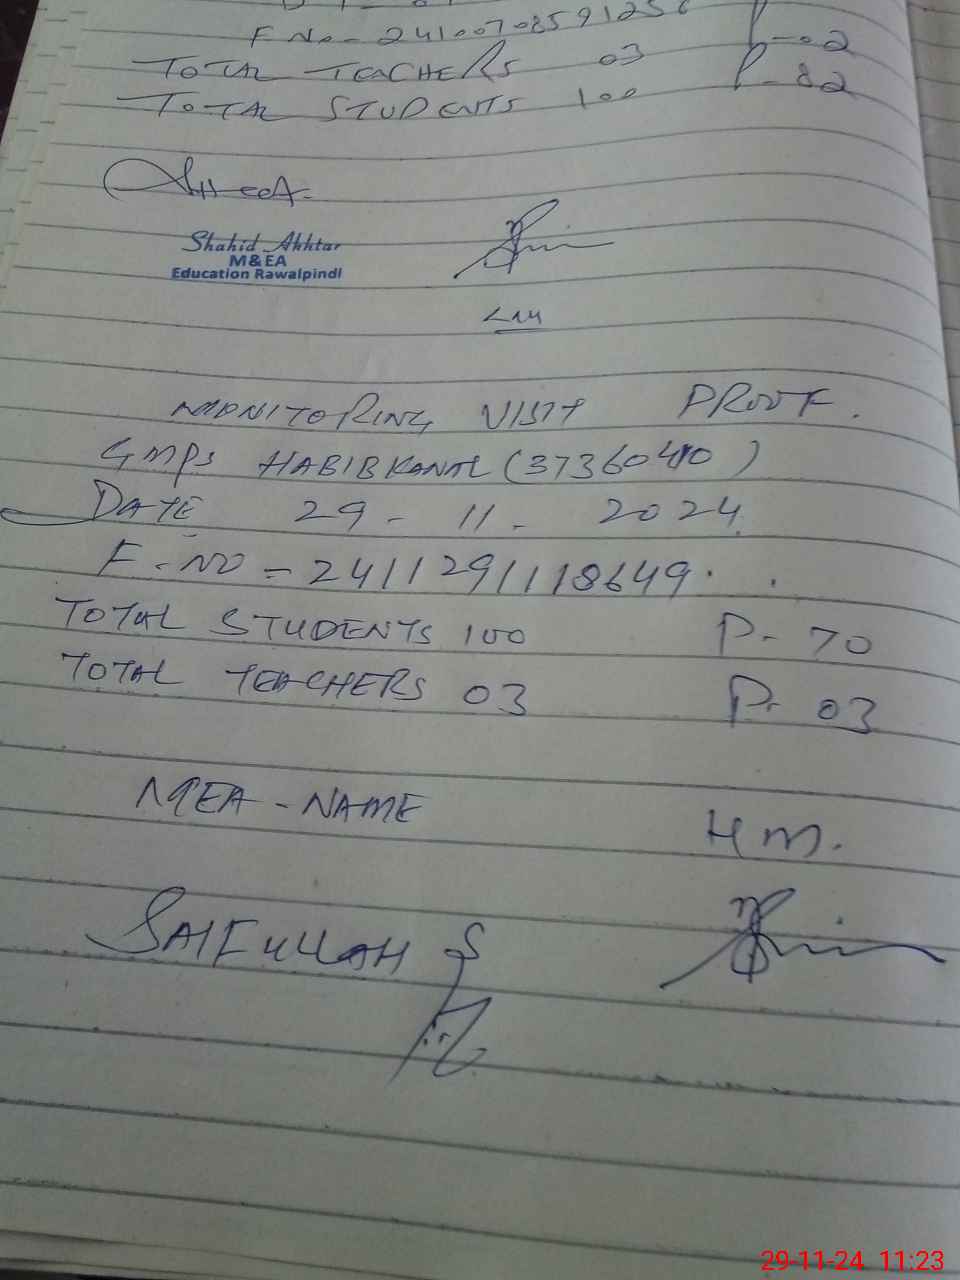 F No - 2410070859125
TOTAL TEACHERS 03 P-02
TOTAL STUDENTS 100 P-82
Shahid Akhtar
M&EA
Education Rawalpindi
MONITORING VISIT PROOF.
GMPS HABIBKANAL (37360410)
DATE 29 - 11 - 2024
F-NO = 2411291118649.
TOTAL STUDENTS 100 P- 70
TOTAL TEACHERS 03 P- 03
MEA - NAME
HM.
SAIFULLAH
29-11-24 11:23